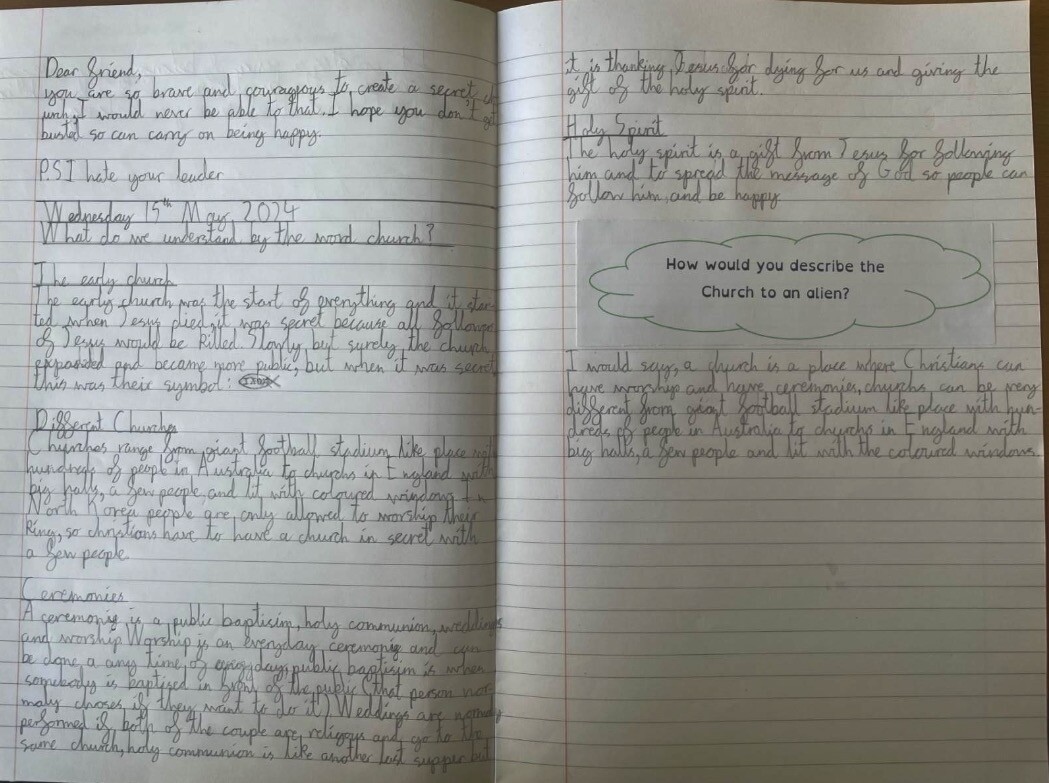 Dear friend,
you are so brave and couragious to create a secret ch-
urch, I would never be able to that. I hope you don't get
busted so can carry on being happy.
P.S I hate your leader
Wednesday 15th May 2024
What do we understand by the word church?
The early church
The early church was the start of everything and it star-
ted when Jesus died, it was secret because all followers
of Jesus would be killed. Slowly but surely, the church
expanded and became more public, but when it was secret
this was their symbol:
Different Churches
Churchos range from giant football stadium like place with
hundreds of peopl in Australia to churchs in England with
big halls, a few people and lit with coloured windows. In
North Korea people are only allowed to worship their
King, so christians have to have a church in secret with
a few people.
Ceremonies
A ceremonie is a public baptisim, holy communion, weddings
and worship. Worship is an everyday ceremonie and can
be done a any time of day, public baptisim is when
somebody is baptised in front of the public (that person nor-
maly choses if they want to do it) Weddings are normaly
performed if both of the couple are religous and go to the
same church, holy communion is like another last supper but
it is thanking Jesus for dying for us and giving the
gift of the holy spirit.
Holy Spirit
The holy spirit is a gift from Jesus for following
him and to spread the message of God so people can
follow him, and be happy.
How would you describe the
Church to an alien?
I would say, a church is a place where Christians can
have worship and have ceremonies, churchs can be very
different from giant football stadium like place with hun-
dreds of people in Australia to churchs in England with
big halls, a few people and lit with the coloured windows.